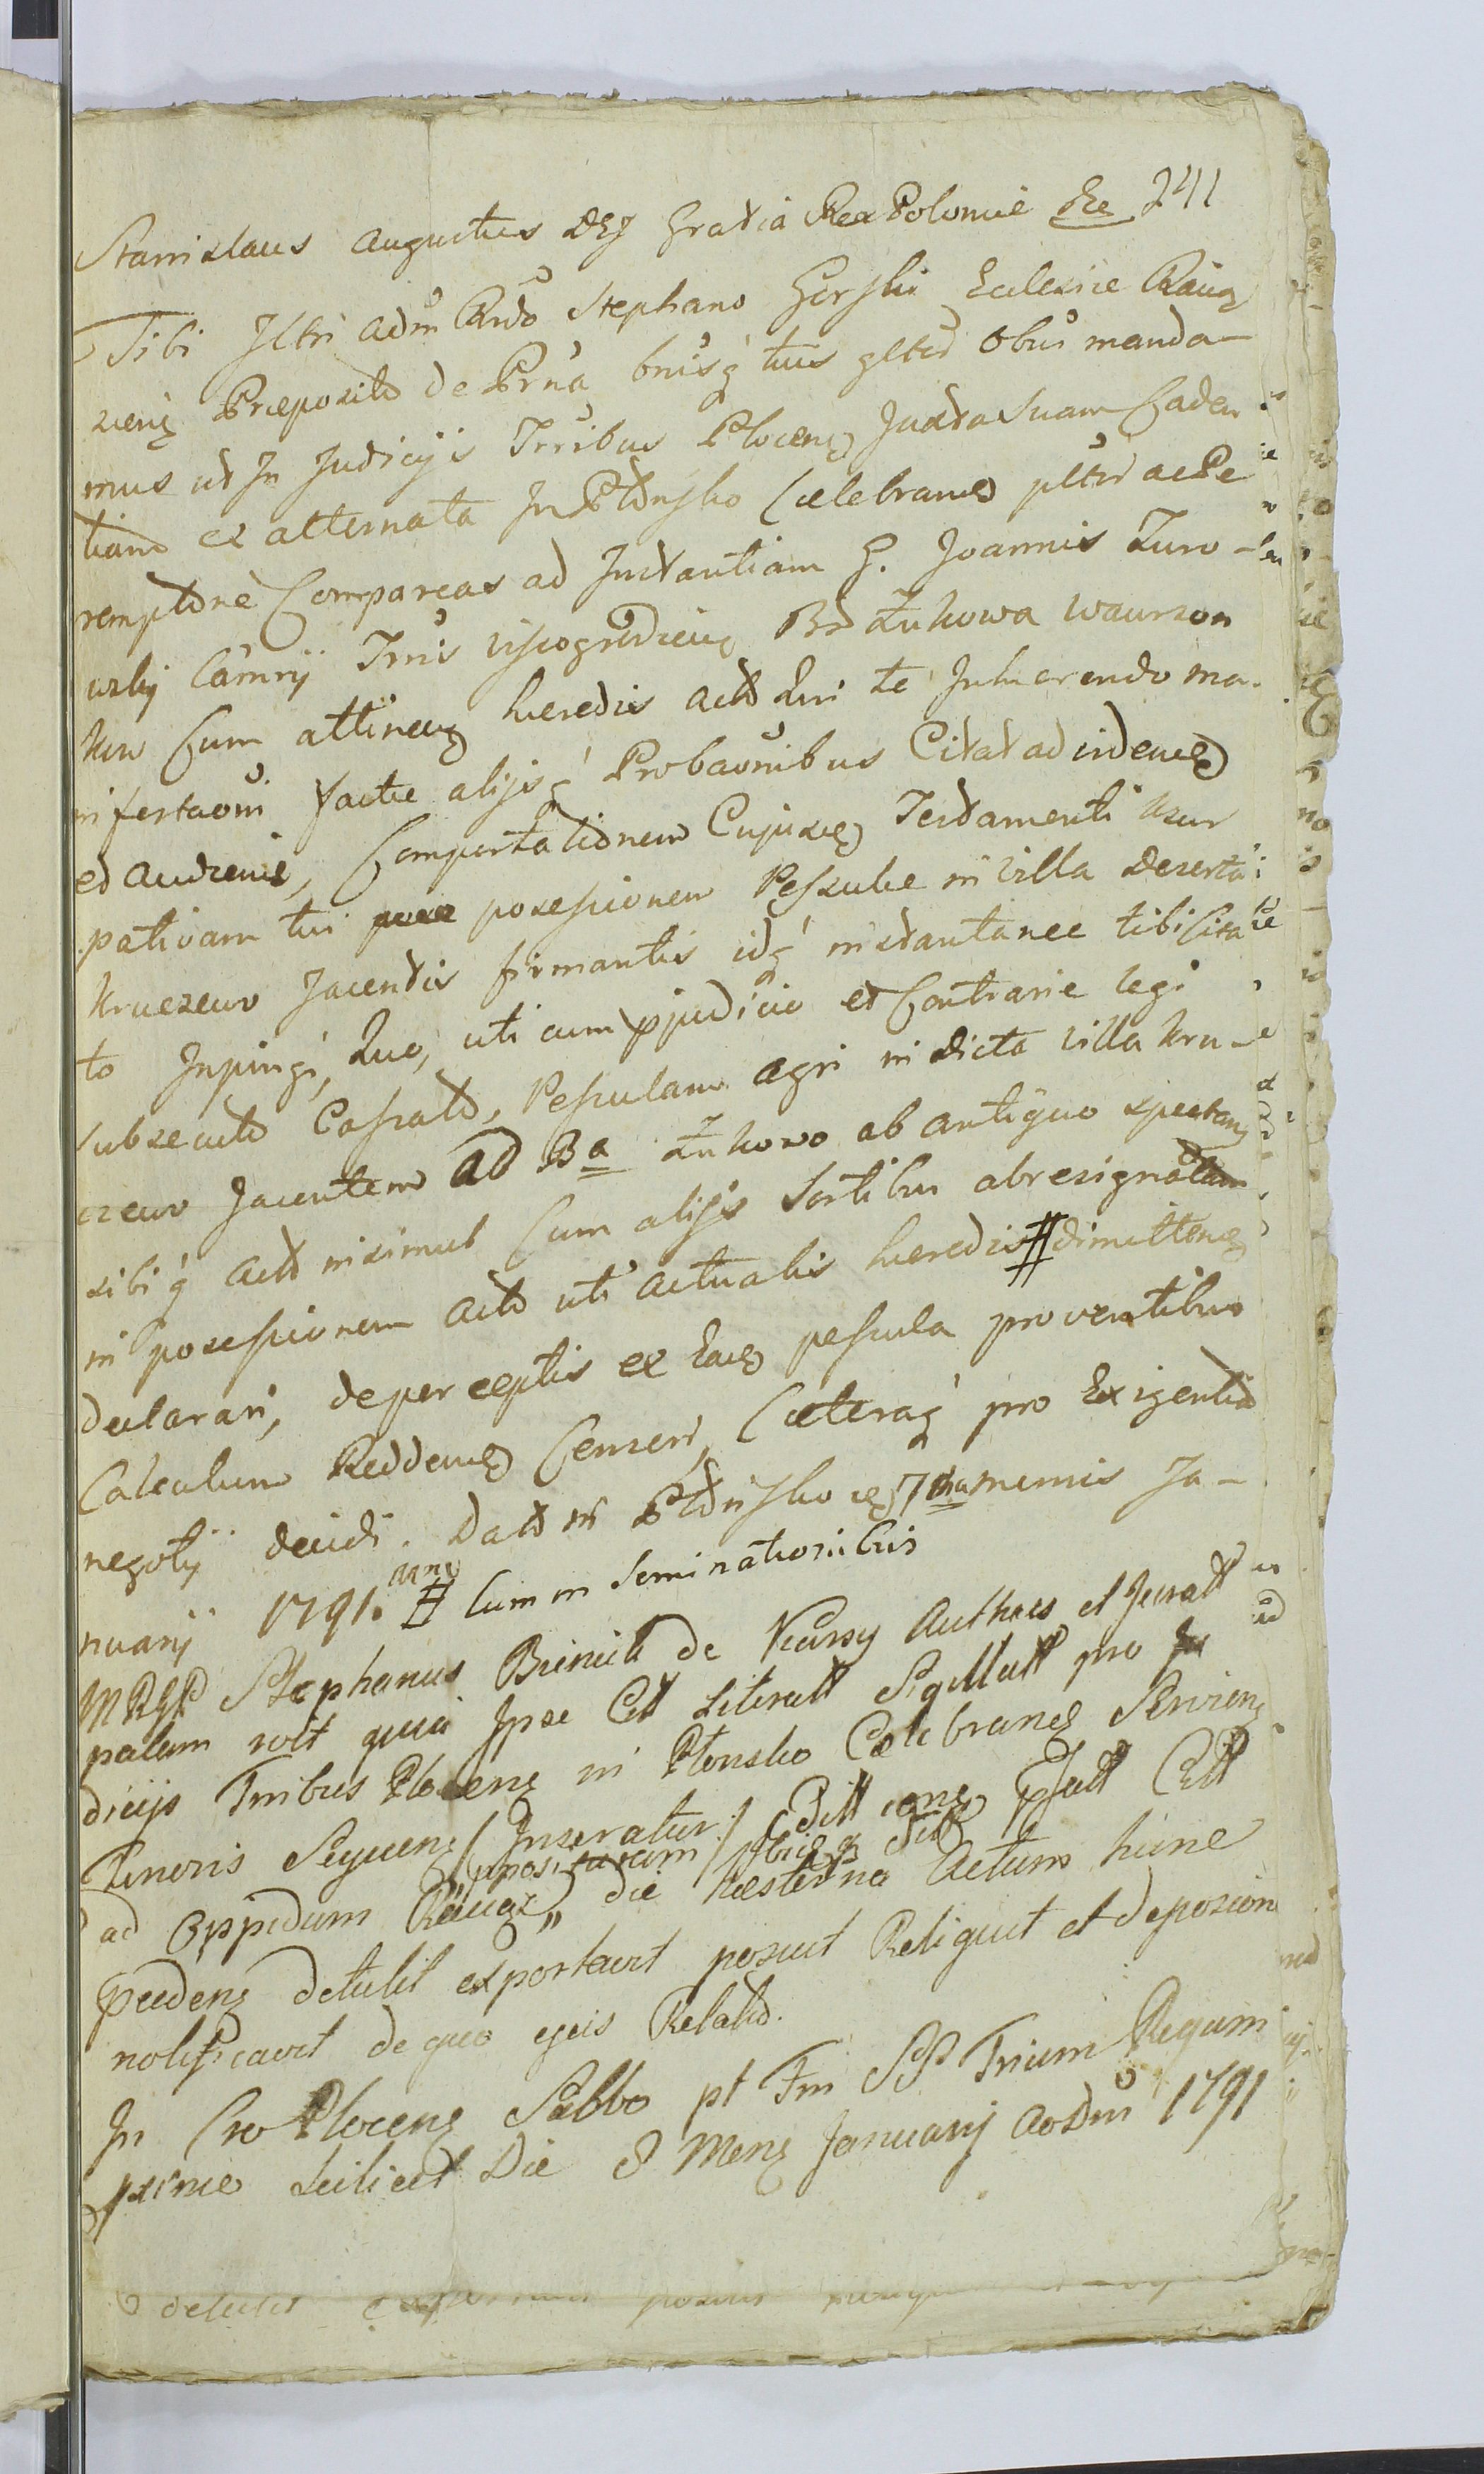 Stanislaus Augustus DEJ Gratia Rex Poloniæ &c 241
Tibi Jltri Adm Rndo Stephano Gorski Ecclesiæ Raciąż
Præposito de Prna bnisq tuis gltr Obus manda-
mus ut In Judicijs Trribus Plocens Juxta Suam Caden
tiam ex alternata In Płońsko Celebrand pltr ac Pe
remptorie Compareas ad Instantiam G. Joannis Zuro-
wskij Camrij Trris Wyssogrodiens Br Żukowa Wawrzon
ków Cum attinens Hæredis Act Qui te Inhærendo ma-
nifestaoni factæ alijsq Probaonibus Citat ad videnď
et Audiend, Comportationem Cujusvis Testamenti Usur
pativam tui possessionem Pessulæ in villa Deserta
Kruczewo Jacentis firmantis idq instantanee tibi Cita
to Inpingi, Quo, uti cum pjudicio et Contrarie legi
subsecuto Cassato, Pessulam agri in dicta villa Kru-
czewo Jacentem AD Ba Żukowo ab antiquo spectanť
sibiq Act insimul Cum alijs Sortibus abresignatam
in possessionem Act uti actualis hæredis # dimittenď
declarari, de perceptis ex Eadem pessula proventibus
Calculum Reddend Censeri, Cæteraq pro Exigentia
negotij decidi. Dat in Płońsko 7ma mensis Ja-
nuarij 1791. Anno # Cum in Seminationibus
MRGR Stephanus Biernik de Karsy Authens et Jurat
palam rolt quia Ipse Citt Literatt Sigillatt pro Ju
dicijs Trribus Plocens in Płonsko Celebrand Servien
Tenoris Sequen / Inseratur / Editt Pfatt Citt
ad Oppidum Raciąż præposituram die hesterna Actum hunc
pcedens detulit exportavit posuit Reliquit et deposion
notificavit de quo ejus Relatio.
In Cro Plocens Sabbo pt Fm SS Trium Regum
pxime Scilicet Die 8 Mens Januarij AoDni 1791